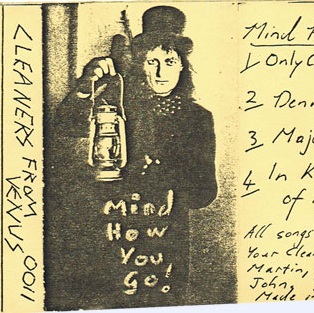 CLEANERS FROM
VENUS 0011
Mind
How
You
Go!
Mind
1 Only
2 Denn
3 Majo
4 In K
of
All songs
Your Clea
Martin,
John,
Made in